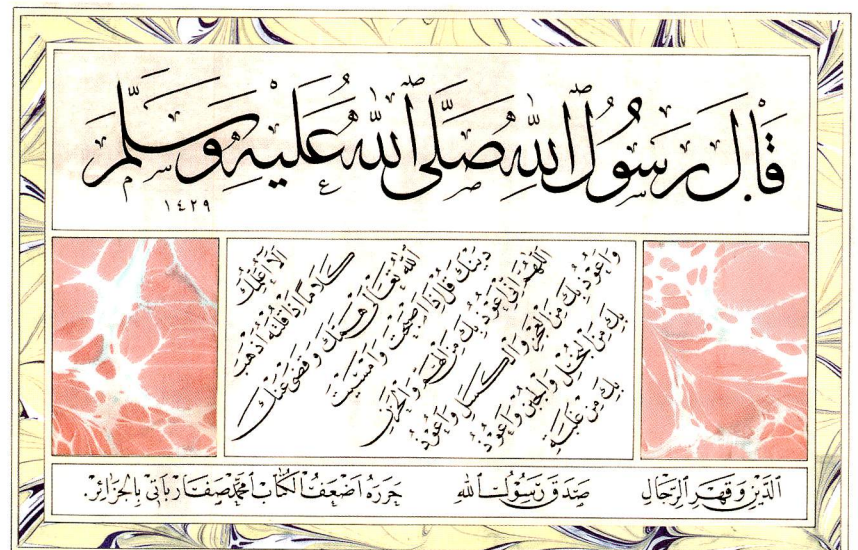 قَالَ رَسُولُ اللهِ صَلَّى اللهُ عَلَيْهِ وَسَلَّمَ
١٤٢٩
اَلَا اُعَلِّمُكَ
كَلَامًا اِذَا قُلْتَهُ اَذْهَبَ
اللهُ تَعَالَى هَمَّكَ وَقَضَى عَنْكَ
دَيْنَكَ قُلْ اِذَا اَصْبَحْتَ وَاَمْسَيْتَ
اَللّٰهُمَّ اِنِّي اَعُوذُ بِكَ مِنَ الْهَمِّ وَالْحَزَنِ
وَاَعُوذُ بِكَ مِنَ الْعَجْزِ وَالْكَسَلِ وَاَعُوذُ
بِكَ مِنَ الْبُخْلِ وَالْجُبْنِ وَاَعُوذُ
بِكَ مِنْ غَلَبَةِ
الدَّيْنِ وَقَهْرِ الرِّجَالِ صَدَقَ رَسُولُ اللهِ حَرَّرَهُ اَضْعَفُ الْكُتَّابْ مُحَمَّدْ صَفَارْ بَاتِي بِالْجَزَائِرْ.